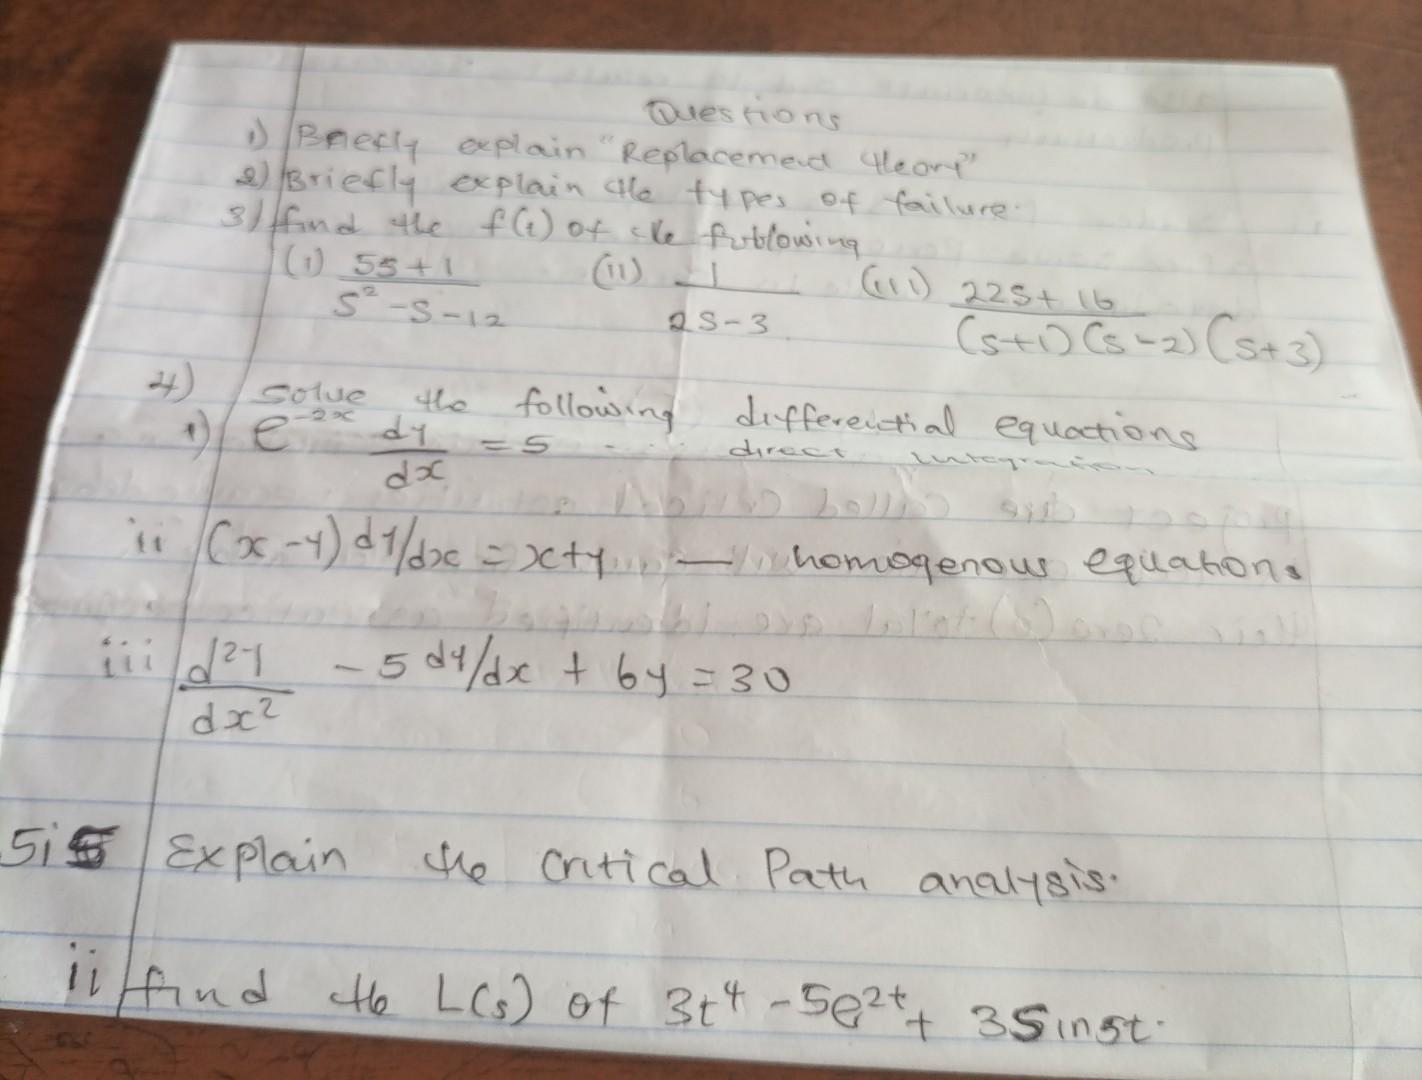 Questions
1) Briefly explain "Replacement theory"
2) Briefly explain the types of failure.
3) find the f(t) of the following
(i) 5s+1 / s² -s -12 (ii) 1 / 2s-3 (iii) 22s+16 / (s+1)(s-2)(s+3)
4) solve the following differential equations
i) e^-2x dy/dx = 5 ... direct integration
ii (x-y) dy/dx = x+y — homogenous equations
iii d²y/dx² - 5 dy/dx + 6y = 30
5i Explain the Critical Path analysis.
ii find the L(s) of 3t⁴ - 5e^2t + 3Sin5t.